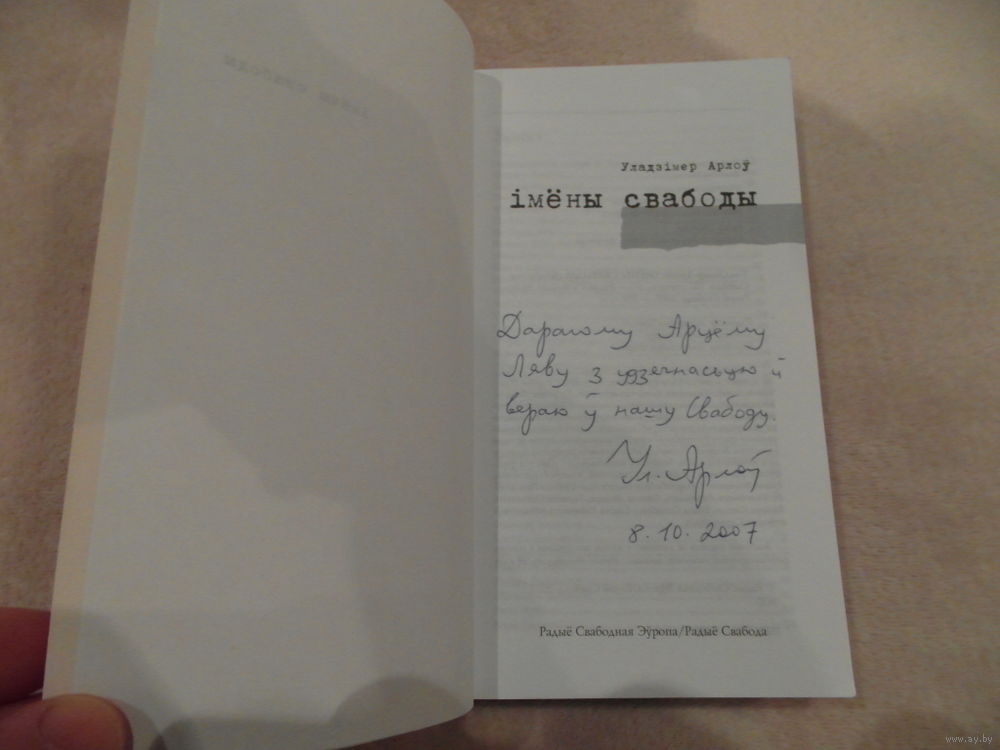 Уладзімер Арлоў
імёны свабоды
Дарагому Арцёму
Ляву з удзячнасьцю й
вераю ў нашу Свабоду.
Ул. Арлоў
8.10.2007
Радыё Свабодная Эўропа/Радыё Свабода
www.ay.by